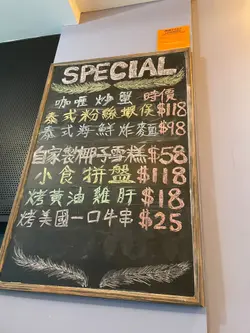 SPECIAL
咖喱炒蟹 時價
泰式粉絲蝦煲 $118
泰式海鮮炸麵 $98
自家製椰子雪糕 $58
小食拼盤 $118
烤黃油雞肝 $18
烤美國一口牛串 $25